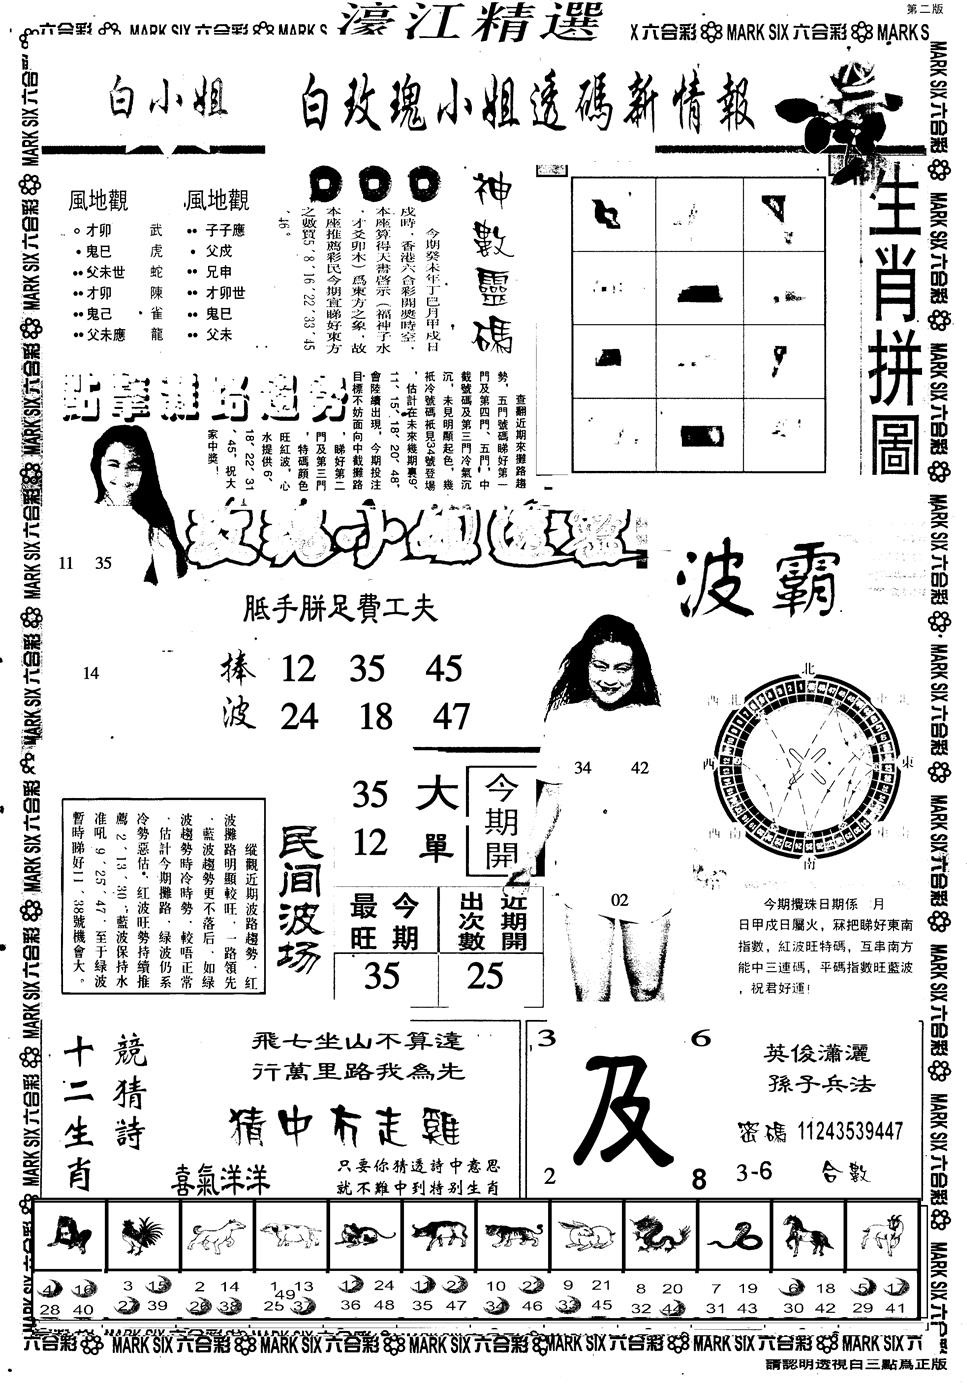 第二版
濠江精選
X 六合彩 MARK SIX 六合彩 MARK S
白小姐
白玫瑰小姐透碼新情報
風地觀
才卯 武
鬼巳 虎
父未世 蛇
才卯 陳
鬼己 雀
父未應 龍
風地觀
子子應
父戍
兄申
才卯世
鬼巳
父未
神數靈碼
今期癸未年丁巳月甲戍日
戍時，香港六合彩開獎時空，
本座算得天書啓示（福神子水
，才爻卯木）爲東方之象，故
本座推薦彩民今期宜睇好東方
之數買5、8、16、22、33、45
、46。
生肖拼圖
點擊攤路趨勢
查翻近期來攤路趨
勢，五門號碼睇好第一
門及第四門、五門，中
截號碼及第三門冷氣沉
沉，未見明顯起色，幾
衹冷號碼衹見34號登場
，估計在未來幾期裏9、
11、15、18、20、48、
會陸續出現，今期投注
目標不妨面向中截攤路
，睇好第二
門及第三門
，特碼顔色
旺紅波，心
水提供6、
18、22、31
、45，祝大
家中獎！
玫瑰小姐透碼
11 35
14
胝手胼足費工夫
捧波
12 35 45
24 18 47
波霸
34 42
02
北
西 東
南
今期攪珠日期係 月
日甲戍日屬火，冧把睇好東南
指數，紅波旺特碼，互串南方
能中三連碼，平碼指數旺藍波
，祝君好運！
35 大
12 單
今期開
最旺 今期
35
出次數 近期開
25
民间波场
縱觀近期波路趨勢，紅
波攤路明顯較旺，一路領先
，藍波趨勢更不落后，如绿
波趨勢時冷時勢，較唔正常
，估計今期攤路，绿波仍系
冷勢惡估，红波旺勢持續推
薦2、13、30，藍波保持水
准吼9、25、47，至于绿波
暫時睇好11、38號機會大。
十二生肖
競猜詩
飛七坐山不算遠
行萬里路我為先
猜中冇走雞
喜氣洋洋
只要你猜透詩中意思
就不難中到特别生肖
3 6
及
2 8
英俊瀟灑
孫子兵法
密碼 11243539447
3-6 合數
4 16 28 40
3 15 27 39
2 14 26 38
1 13 25 37 49
12 24 36 48
11 23 35 47
10 22 34 46
9 21 33 45
8 20 32 44
7 19 31 43
6 18 30 42
5 17 29 41
六合彩 MARK SIX 六合彩 MARK SIX 六合彩 MARK SIX 六合彩 MARK SIX 六合彩 MARK SIX 六合彩 MARK SIX 六
請認明透視白三點爲正版